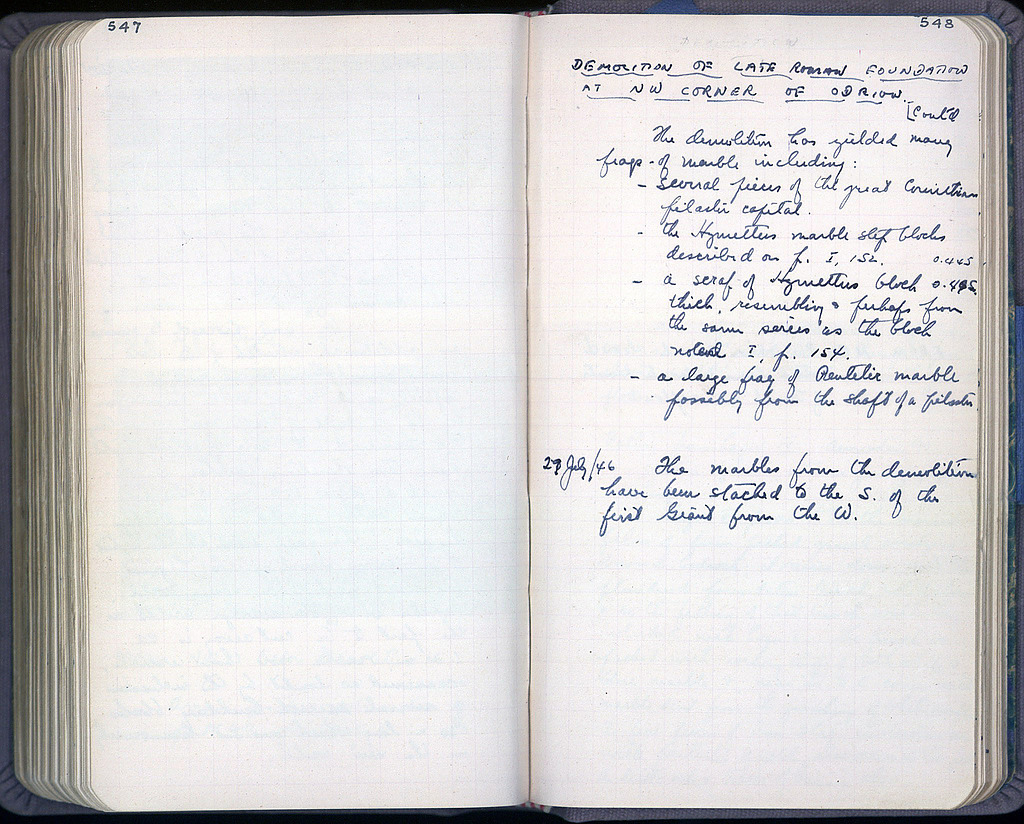 547
548
DEMOLITION OF LATE ROMAN FOUNDATION
AT NW CORNER OF ODEION.
[Cont'd
The demolition has yielded many
frags. of marble including:
- several pieces of the great Corinthian
pilaster capital.
- the Hymettus marble step blocks
described on p. I, 152. 0.445
- a scrap of Hymettus block 0.495
thick, resembling & perhaps from
the same series as the block
noted I, p. 154.
- a large frag of Pentelic marble
possibly from the shaft of a pilaster.
29 July/46 The marbles from the demolition
have been stacked to the S. of the
first Giant from the W.